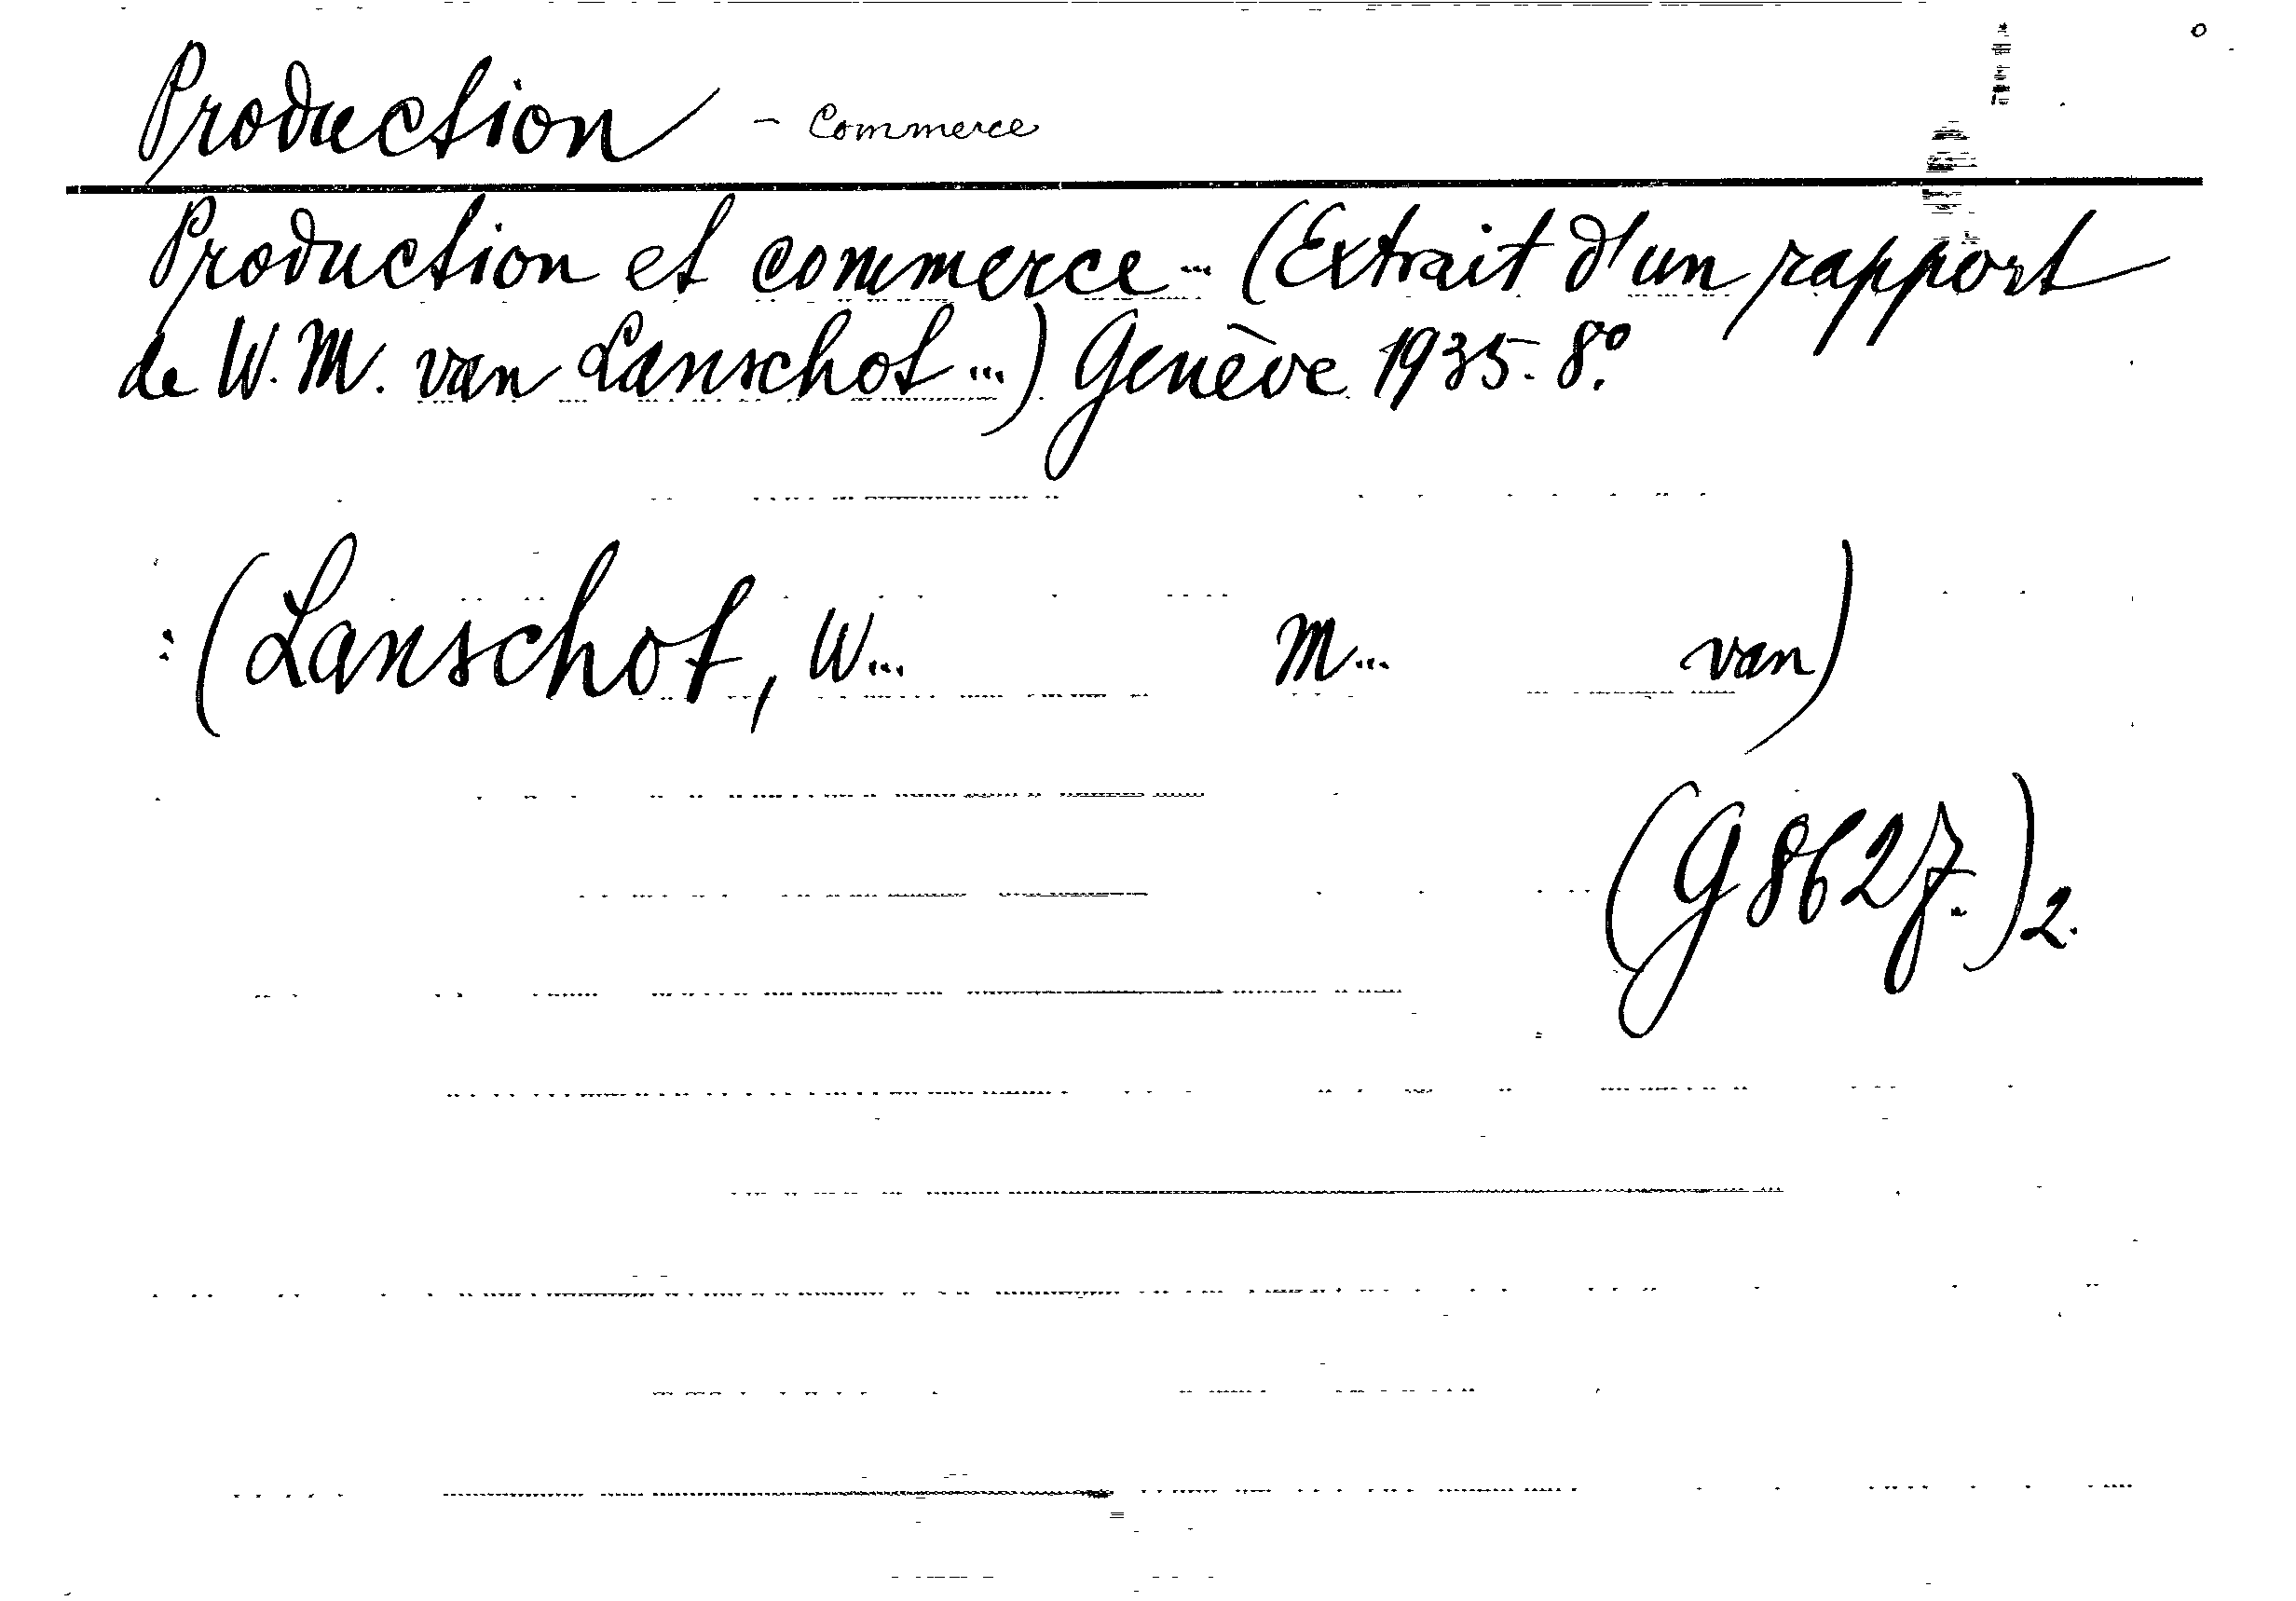 Production - Commerce
Production et commerce... (Extrait d'un rapport
de W. M. van Lanschot...) Genève 1935. 8°.
: (Lanschot, W... M... van)
(G 8627.)2.